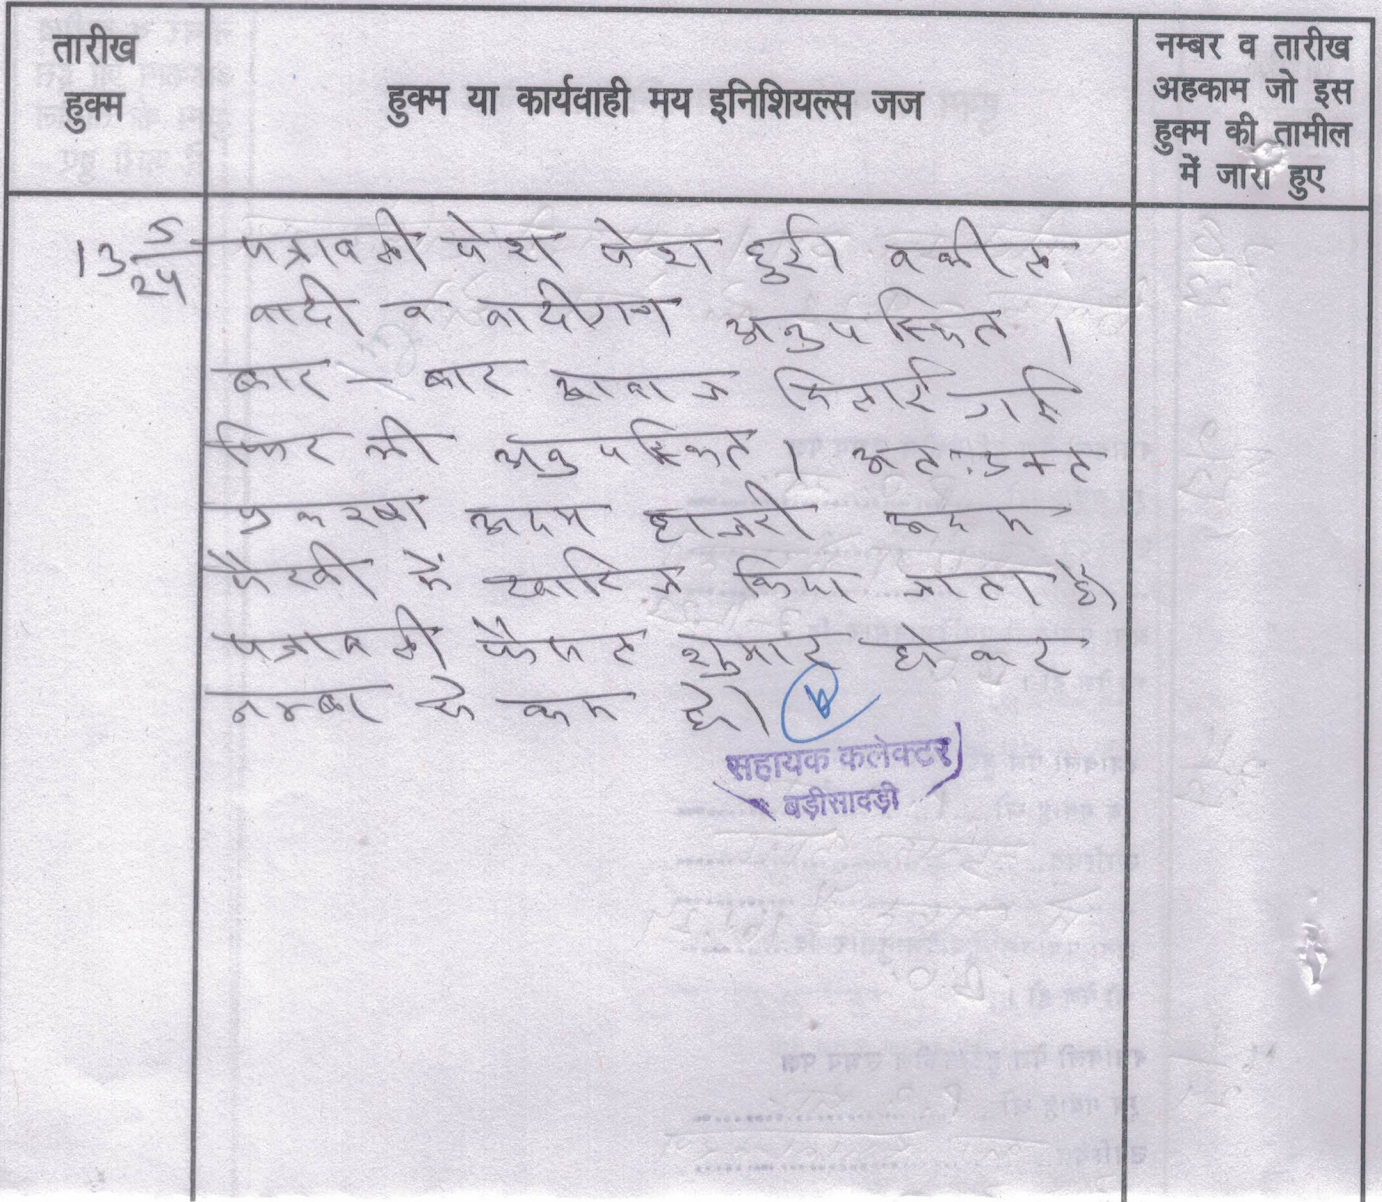 तारीख
हुक्म
हुक्म या कार्यवाही मय इनिशियल्स जज
नम्बर व तारीख
अहकाम जो इस
हुक्म की तामील
में जारी हुए
13 5/24
पत्रावली पेश पेश हुई। वकील
वादी व वादीगण अनुपस्थित।
बार - बार आवाज दिलाई गई
फिर भी अनुपस्थित। अतः उक्त
प्रकरण अदम हाजरी अदम
पैरवी में खारिज किया जाता है।
पत्रावली फैसल शुमार होकर
नम्बर से कम हो।
सहायक कलेक्टर
बड़ीसादड़ी